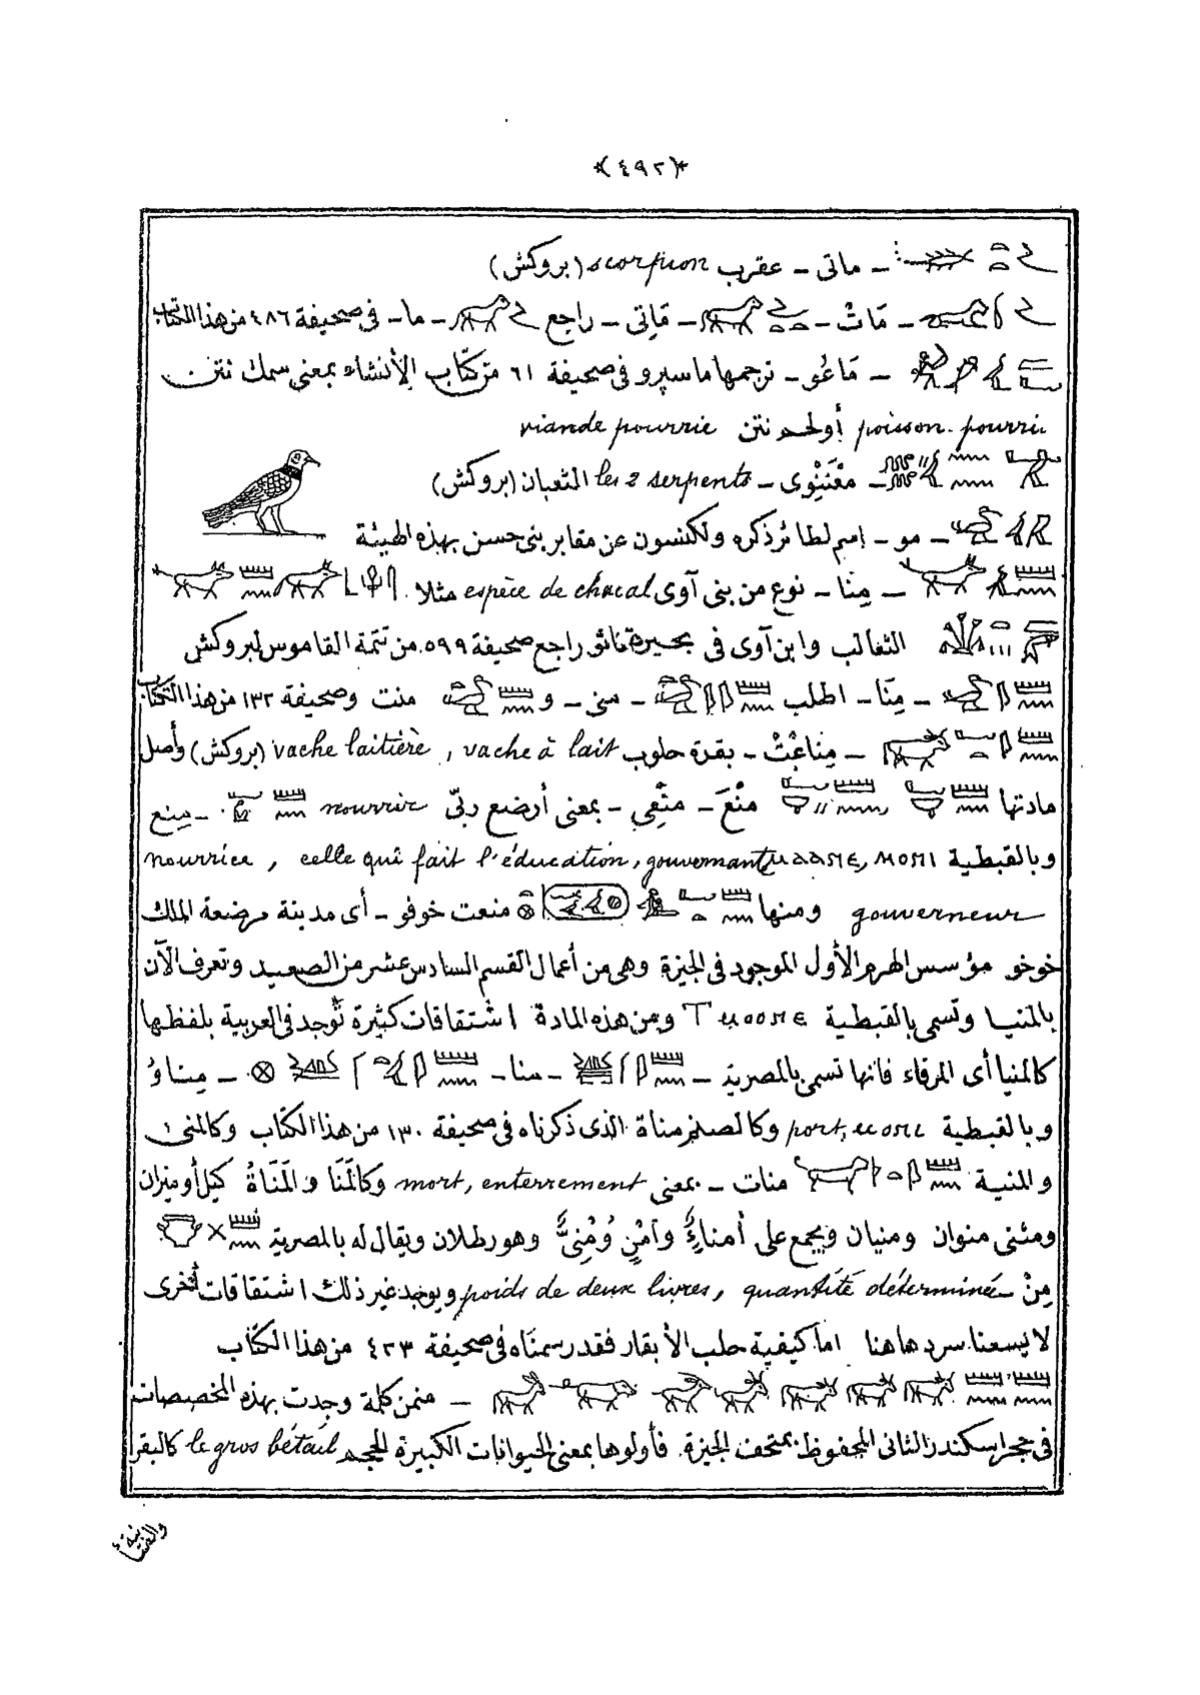 *(٤٩٢)*
ـ ماتى ـ عقرب scorpion (بروكش)
ـ مَاتْ ـ ـ مَاتِى ـ راجع ـ ما ـ فى صحيفة ٤٨٦ من هذا الكتاب
ـ مَاعُو ـ ترجمها ماسپرو فى صحيفة ٦١ من كتاب الأنشاء بمعنى سمك نتن
poisson pourri أو لحم نتن viande pourrie
ـ مغْنِنْوِى ـ les 2 serpents الثعبان (بروكش)
ـ مو ـ إسم لطائر ذكره ولكنسون عن مقابر بنى حسن بهذه الهيئة
ـ مِنَا ـ نوع من بنى آوى espèce de chacal مثلا
الثعالب وابن آوى فى بحيرة راجع صحيفة ٥٩٩ من تتمة القاموس لبروكش
ـ مِنَا ـ اطلب ـ منى ـ و منت وصحيفة ١٣٢ من هذا الكتاب
ـ مِنَاعْتْ ـ بقرة حلوب vache laitière , vache à lait (بروكش) وأصل
مادتها مَنْعَ ـ منْعِى ـ بمعنى أرضع ربّى nourrir ـ مِنع
وبالقبطية ⲙⲁⲁⲛⲉ, ⲙⲟⲛⲓ nourrice, celle qui fait l'éducation, gouvernante
gouverneur ومنها منعت خوفو ـ أى مدينة مرضعة الملك
خوخو مؤسس الهرم الأول الموجود فى الجيزة وهى من أعمال القسم السادس عشر من الصعيد وتعرف الآن
بالمنيا وتسمى بالقبطية Ⲧⲙⲟⲟⲛⲉ ومن هذه المادة اشتقاقات كثيرة توجد فى العربية بلفظها
كالمنيا أى المرفاء فانها تسمى بالمصرية ـ ـ منا ـ ـ مِناوُ
وبالقبطية ⲙⲟⲛⲓ port, وكالصنم مناة الذى ذكرناه فى صحيفة ١٣٠ من هذا الكتاب وكالمنى
والمنية منات ـ بمعنى mort, enterrement وكالمَنَا والمَنَاةُ كيل أو ميزان
ومثنى منوان ومنيان ويجمع على أمناءٌ وأمْنٍ وُمْنِىٌّ وهو رطلان ويقال له بالمصرية
مِنْ ـ poids de deux livres, quantité déterminée ويوجد غير ذلك اشتقاقات أخرى
لا يسعنا سردها هنا اما كيفية حلب الأبقار فقد رسمناه فى صحيفة ٤٢٣ من هذا الكتاب
ـ منمن كلمة وجدت بهذه المخصصات
فى حجر اسكندر الثانى المحفوظ بمتحف الجيزة فأولوها بمعنى الحيوانات الكبيرة الحجم le gros bétail كالبقر